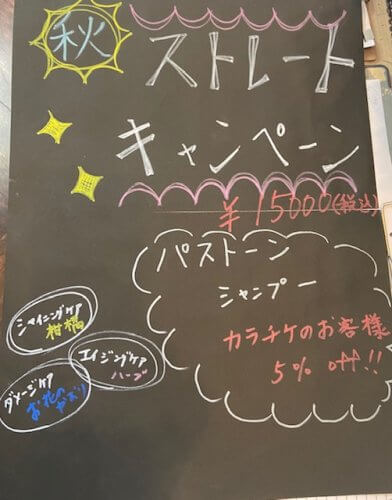 秋
ストレート
キャンペーン
¥15000(税込)
パストーン
シャンプー
カラチケのお客様
5% off!!
シャイニングケア
柑橘
エイジングケア
ハーブ
ダメージケア
お花のかおり